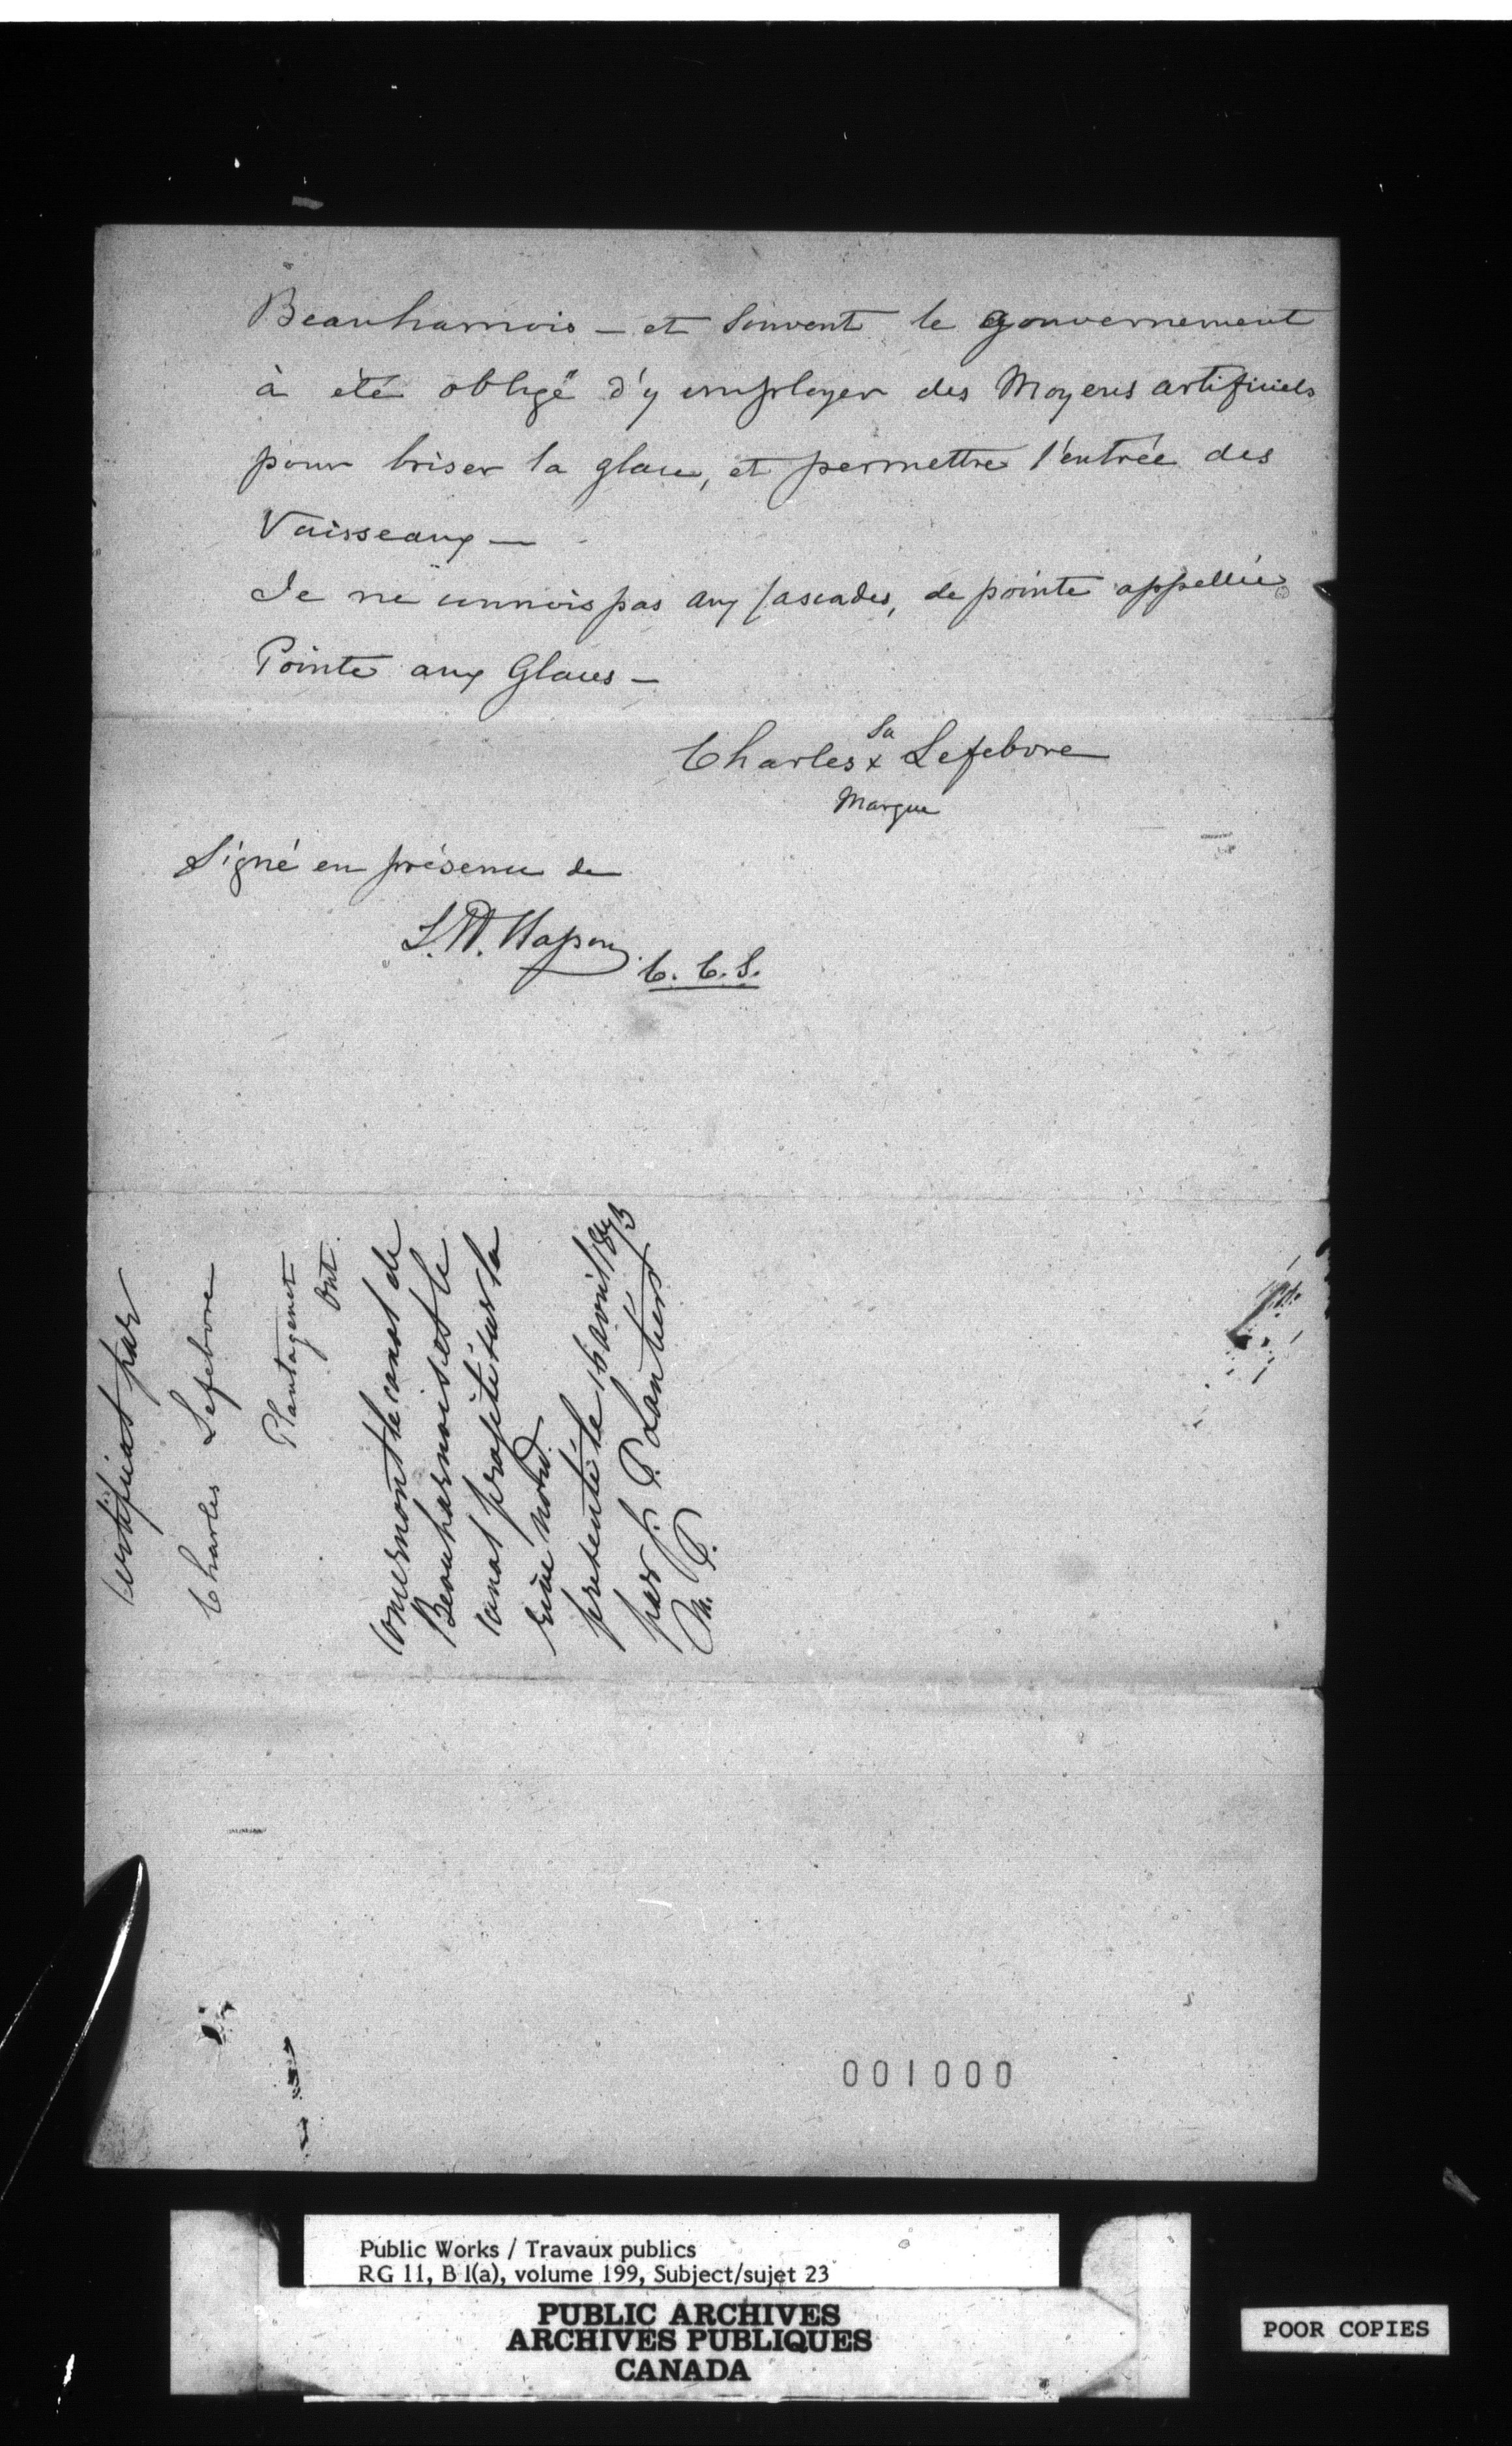 Beauharnois — et souvent le gouvernement
à été obligé d'y employer des Moyens artificiels
pour briser la glace, et permettre l'entrée des
Vaisseaux —
Je ne connois pas aux Cascades, de pointe appellée
Pointe aux Glaces —
Sa
Charles x Lefebvre
Marque
Signé en présence de
C. C. S.
Certificat par
Charles Lefebvre
Plantagenet
Ont.
Concernant le canal de
Beauharnois et le
canal projeté sur la
rive nord.
présenté le avril 1873
par J. P. Lantier
M. P.
001000
Public Works / Travaux publics
RG 11, B 1(a), volume 199, Subject/sujet 23
PUBLIC ARCHIVES
ARCHIVES PUBLIQUES
CANADA
POOR COPIES